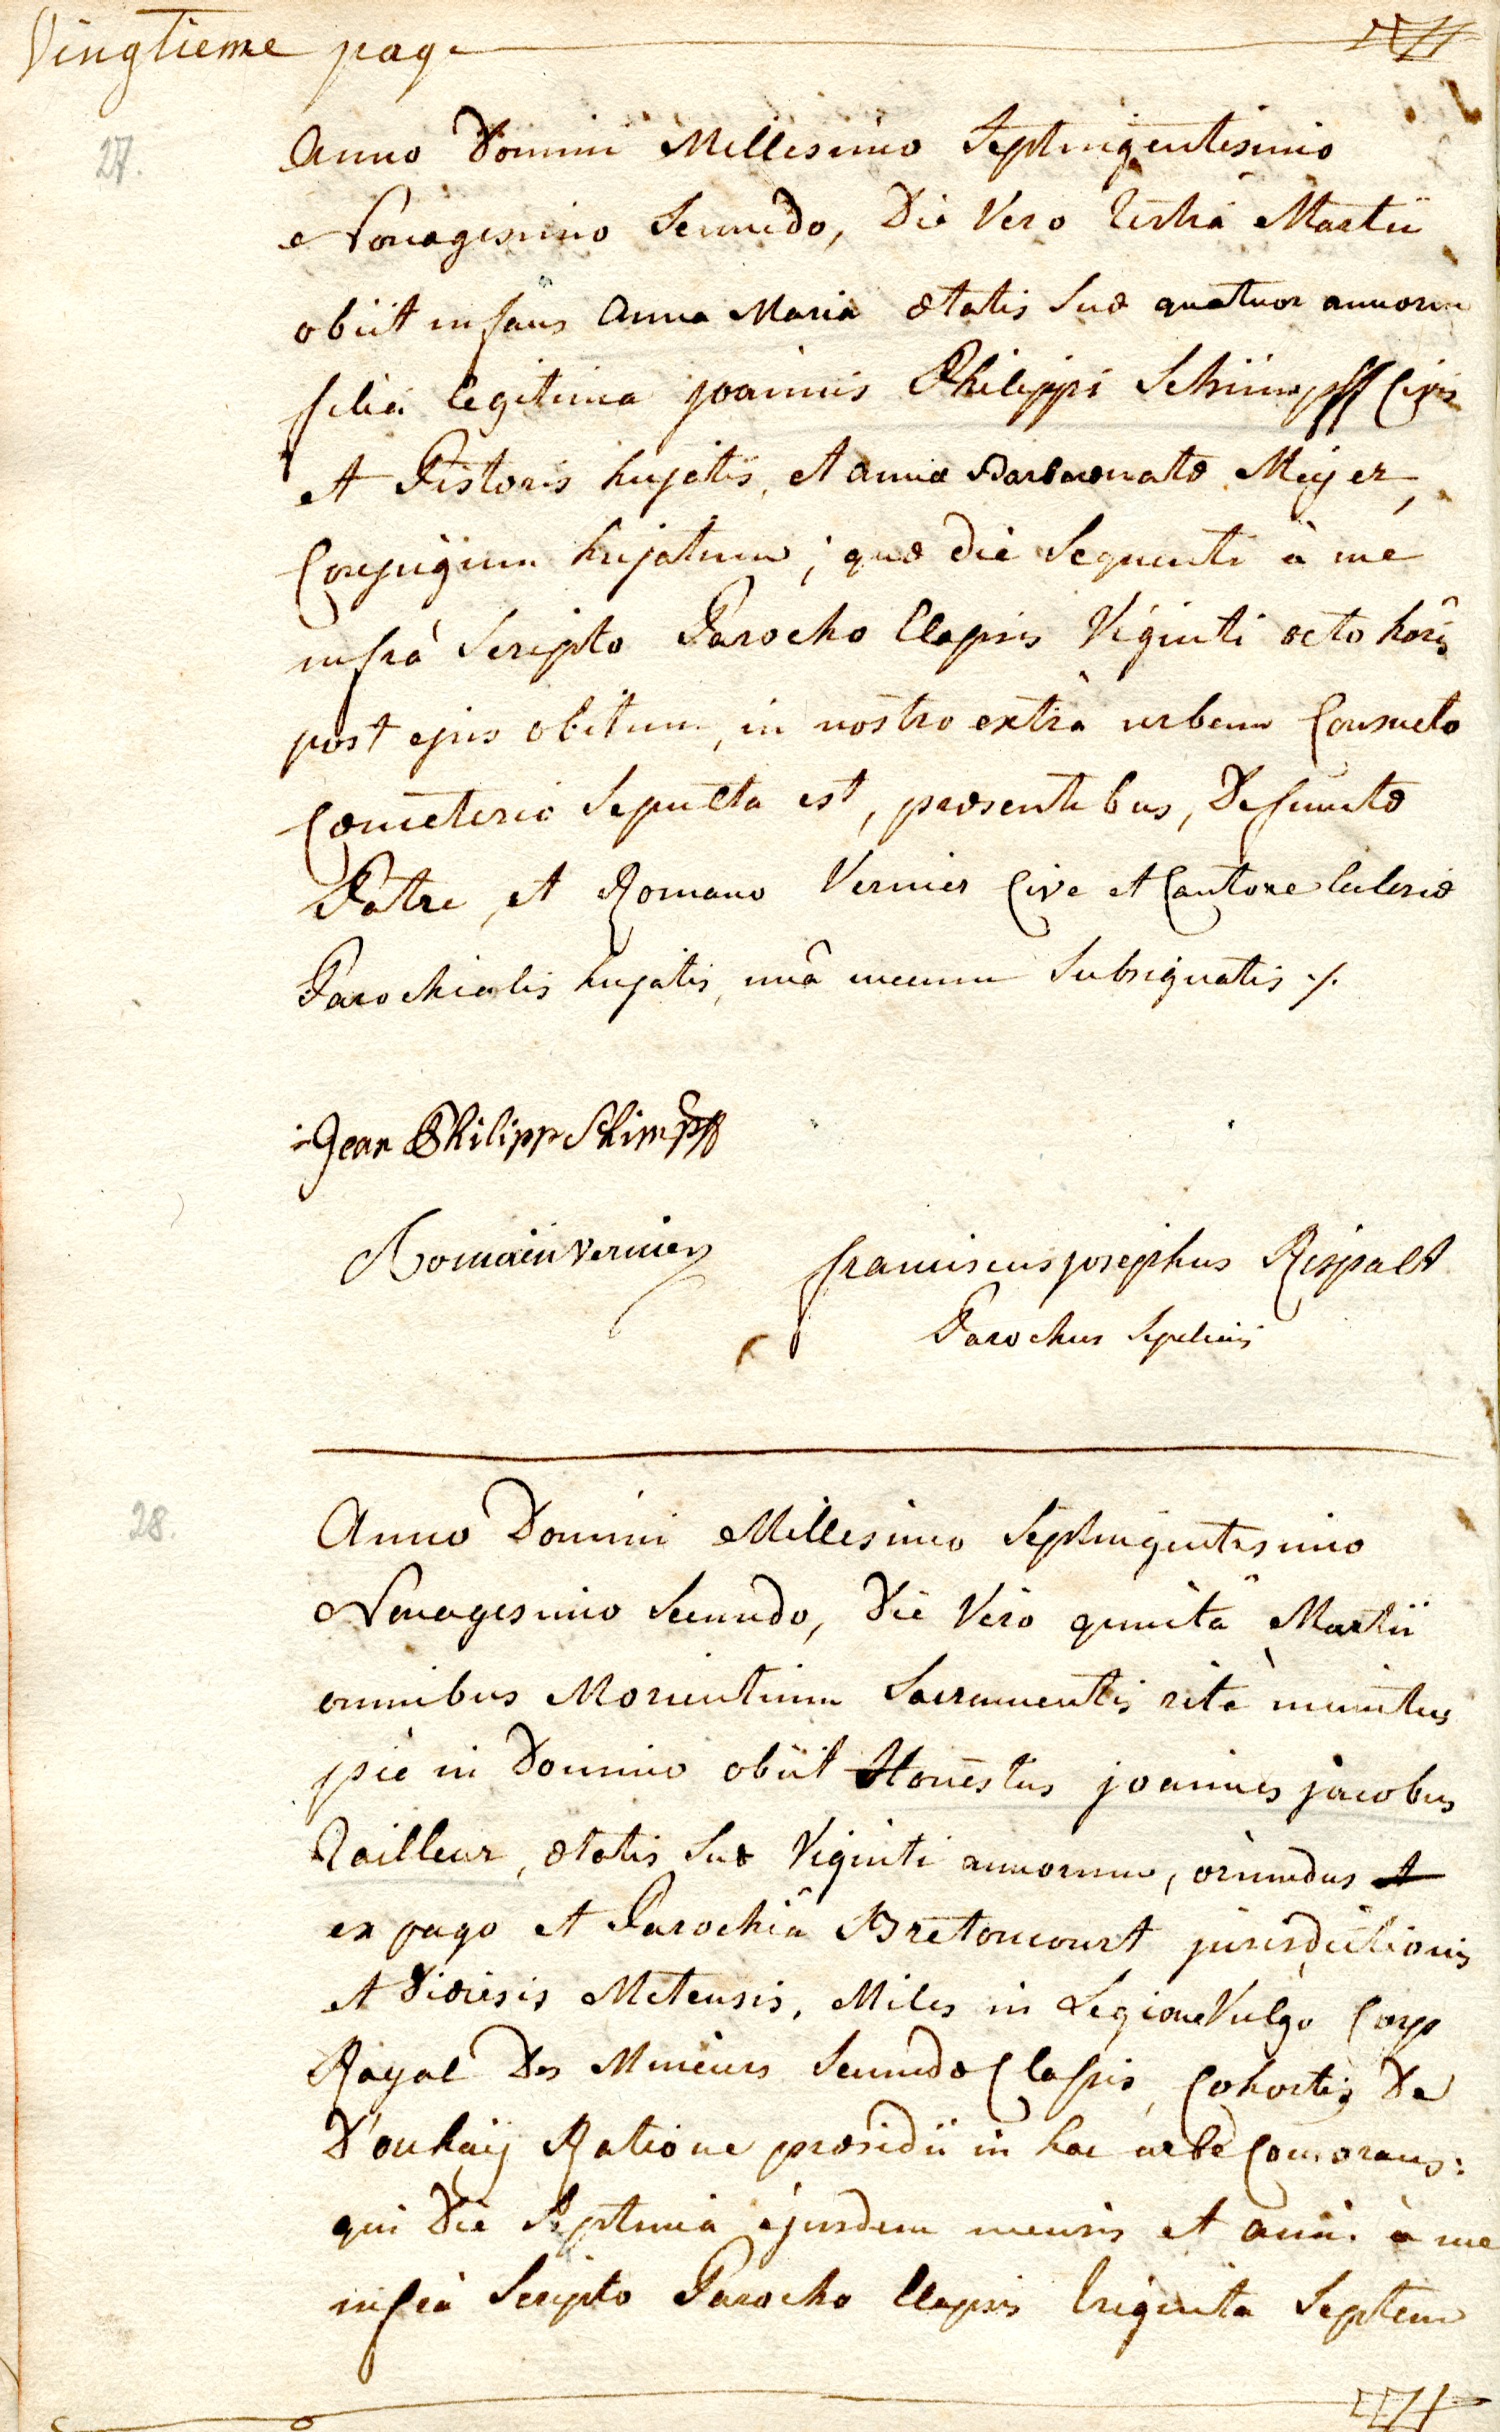 Vingtieme page
27.
Anno Domini Millesimo Septingentesimo
Nonagesimo Secundo, Die Vero tertiâ Martii
obiit infans Anna Maria ætatis suæ quatuor annorum
filia legitima joannis Philippi Schimpff Civis
et Pistoris hujatis, et annæ Barbaræ natæ Meyer,
Conjugum hujatum; quæ die Sequenti à me
infrà Scripto Parocho Elapsis Viginti octo horis
post ejus obitum, in nostro extrà urbem Consueto
Cœmeterio Sepulta est, præsentibus, Defunctæ
Patre, et Romano Vernier Cive et Cantore Eclesiæ
Parochialis hujatis, unâ mecum Subsignatis ./.
Jean Philipp Schimpff
Romain vernier
franciscus josephus Rispalt
Parochus Sepeliens
28.
Anno Domini Millesimo Septingentesimo
Nonagesimo Secundo, Die Vero quintâ Martii
omnibus Morientium Sacramentis ritè munitus
piè in Domino obiit Honestus joannes jacobus
Tailleur, ætatis suæ Viginti annorum, oriundus et
ex pago et Parochiâ Bretoncourt jurisdictionis
et Diœcesis Metensis, Miles in Legione Vulgo Corp
Royal Des Mineurs Secundæ Classis, Cohortis De
D'ouhaÿ Ratione præsidii in hac urbe Comorans:
qui Die Septima ejusdem mensis et anni à me
infrà Scripto Parocho Elapsis triginta Septem